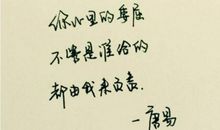 你心里的委屈
不管是谁给的
都由我来负责.
—唐易